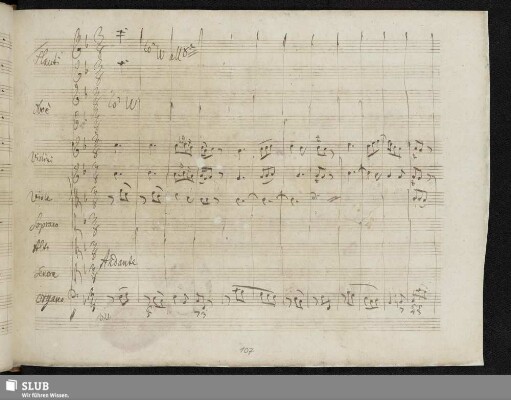 Flauti
Oboe
Violini
Viola
Soprano
Alto
Andante
Tenore
Organo
107
SLUB
Wir führen Wissen.